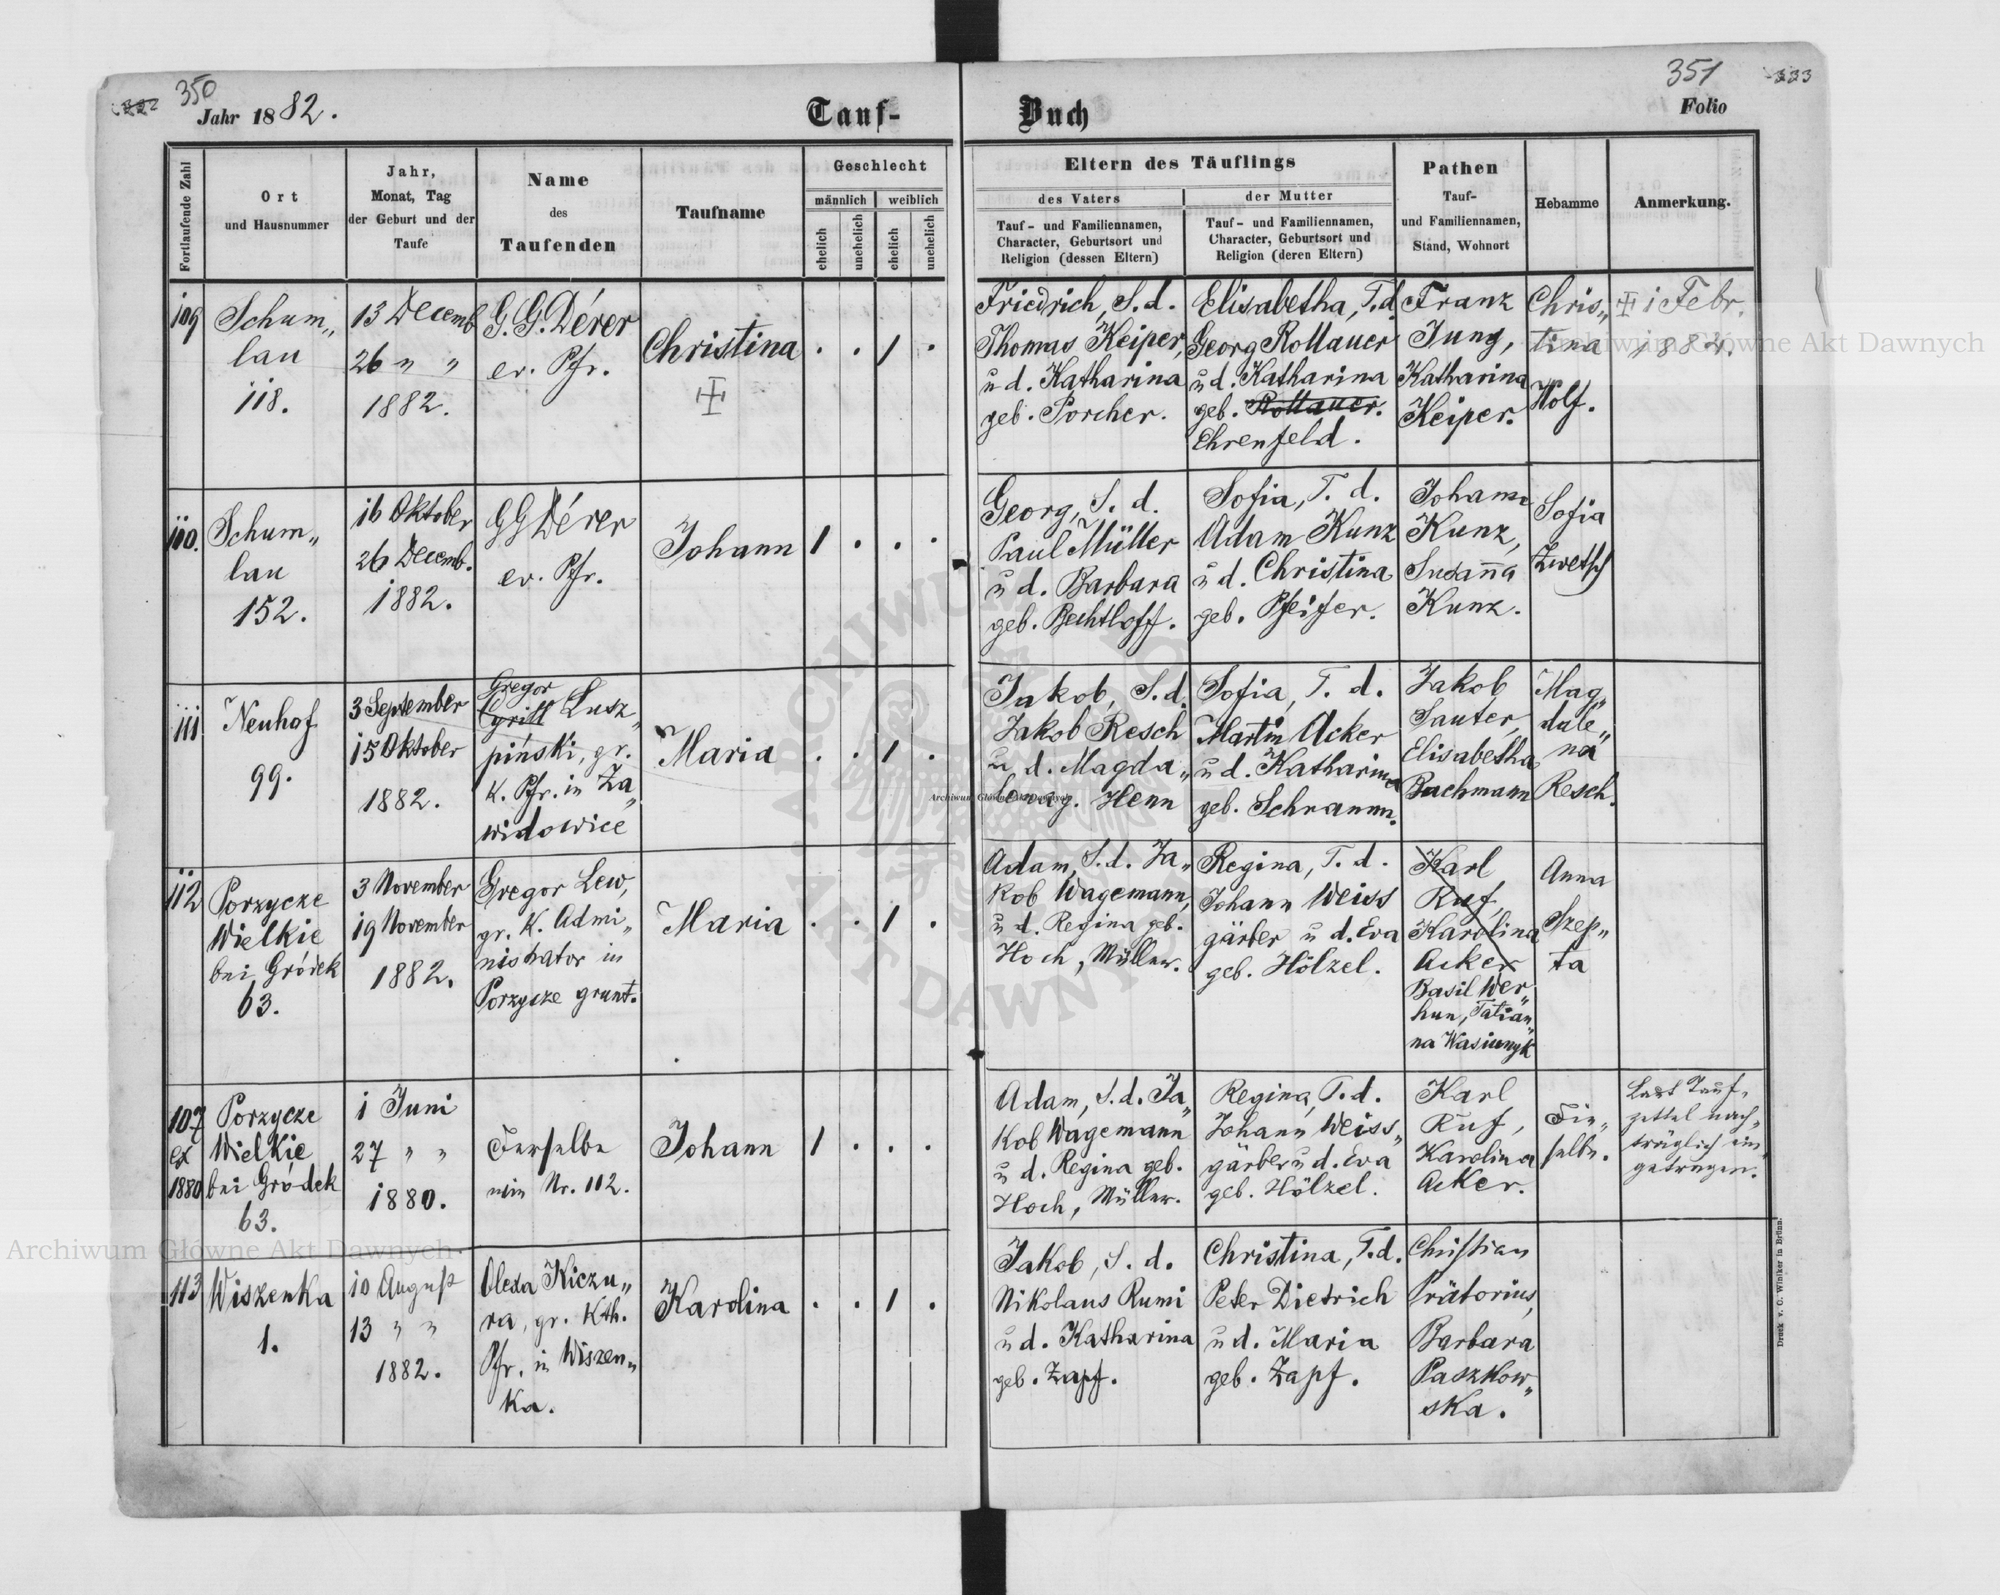 332 350
Jahr 1882.
Tauf-
Fortlaufende Zahl
Ort
und Hausnummer
Jahr,
Monat, Tag
der Geburt und der
Taufe
Name
des
Taufenden
Taufname
Geschlecht
männlich weiblich
ehelich unehelich ehelich unehelich
109
Schum„
lau
118.
13 Decemb
26 „ „
1882.
G. G. Dérer
ev. Pfr.
Christina
. . 1 .
110.
Schum„
lau
152.
16 Oktober
26 Decemb.
1882.
G G Dérer
ev. Pfr.
Johann
1 . . .
111
Neuhof
99.
3 September
15 Oktober
1882.
Gregor
Cyrill Lusz„
piński, gr.
k. Pfr. in Za„
widowice
Maria
. . 1 .
112
Porzycze
Wielkie
bei Gródek
63.
3 November
19 November
1882.
Gregor Lew,
gr. k. Admi„
nistrator in
Porzycze grunt.
Maria
. . 1 .
107
ex
1880
Porzycze
Wielkie
bei Gródek
63.
1 Juni
27 „ „
1880.
Derselbe
wie Nr. 112.
Johann
1 . . .
113
Wiszenka
1.
10 August
13 „ „
1882.
Olexa Kiczu„
ra, gr. kth.
Pfr. in Wiszen„
ka.
Karolina
. . 1 .
351 333
Buch
Folio
Eltern des Täuflings
des Vaters
Tauf- und Familiennamen,
Character, Geburtsort und
Religion (dessen Eltern)
der Mutter
Tauf- und Familiennamen,
Character, Geburtsort und
Religion (deren Eltern)
Pathen
Tauf-
und Familiennamen,
Stand, Wohnort
Hebamme
Anmerkung.
Friedrich, S. d.
Thomas Keiper,
u d. Katharina
geb. Porcher.
Elisabetha, T. d.
Georg Rollauer
u d. Katharina
geb. Rollauer.
Ehrenfeld.
Franz
Jung,
Katharina
Keiper.
Chris„
tina
Wolf.
1 Febr.
1884.
Georg, S. d.
Paul Müller
u d. Barbara
geb. Bechtloff.
Sofia, T. d.
Adam Kunz
u d. Christina
geb. Pfeifer.
Johann
Kunz,
Susanna
Kunz.
Sofia
Zwetsch
Jakob, S. d.
Jakob Resch
u d. Magda„
lena g. Henn
Sofia, T. d.
Martin Acker
u d. Katharina
geb. Schramm.
Jakob
Sauter,
Elisabetha
Bachmann
Mag„
dale„
na
Resch.
Adam, S. d. Ja„
kob Wagemann,
u d. Regina geb.
Hoch, Müller.
Regina, T. d.
Johann Weiss
gärber u d. Eva
geb. Hölzel.
Karl
Ruf,
Karolina
Acker
Basil Wer„
hun, Tatian„
na Wasiunyk
Anna
Szep„
ta
Adam, S. d. Ja„
kob Wagemann
u d. Regina geb.
Hoch, Müller.
Regina, T. d.
Johann Weiss„
gärber u d. Eva
geb. Hölzel.
Karl
Ruf,
Karolina
Acker.
Die„
selbe.
Laut Tauf„
zettel nach„
träglich ein
getragen.
Jakob, S. d.
Nikolaus Rumi
u d. Katharina
geb. Zapf.
Christina, T. d.
Peter Dietrich
u d. Maria
geb. Zapf.
Christian
Prätorius,
Barbara
Paszkow„
ska.
Druck v. C. Winiker in Brünn.
Archiwum Główne Akt Dawnych
Archiwum Główne Akt Dawnych
Archiwum Główne Akt Dawnych
ARCHIWUM GŁÓWNE AKT DAWNYCH